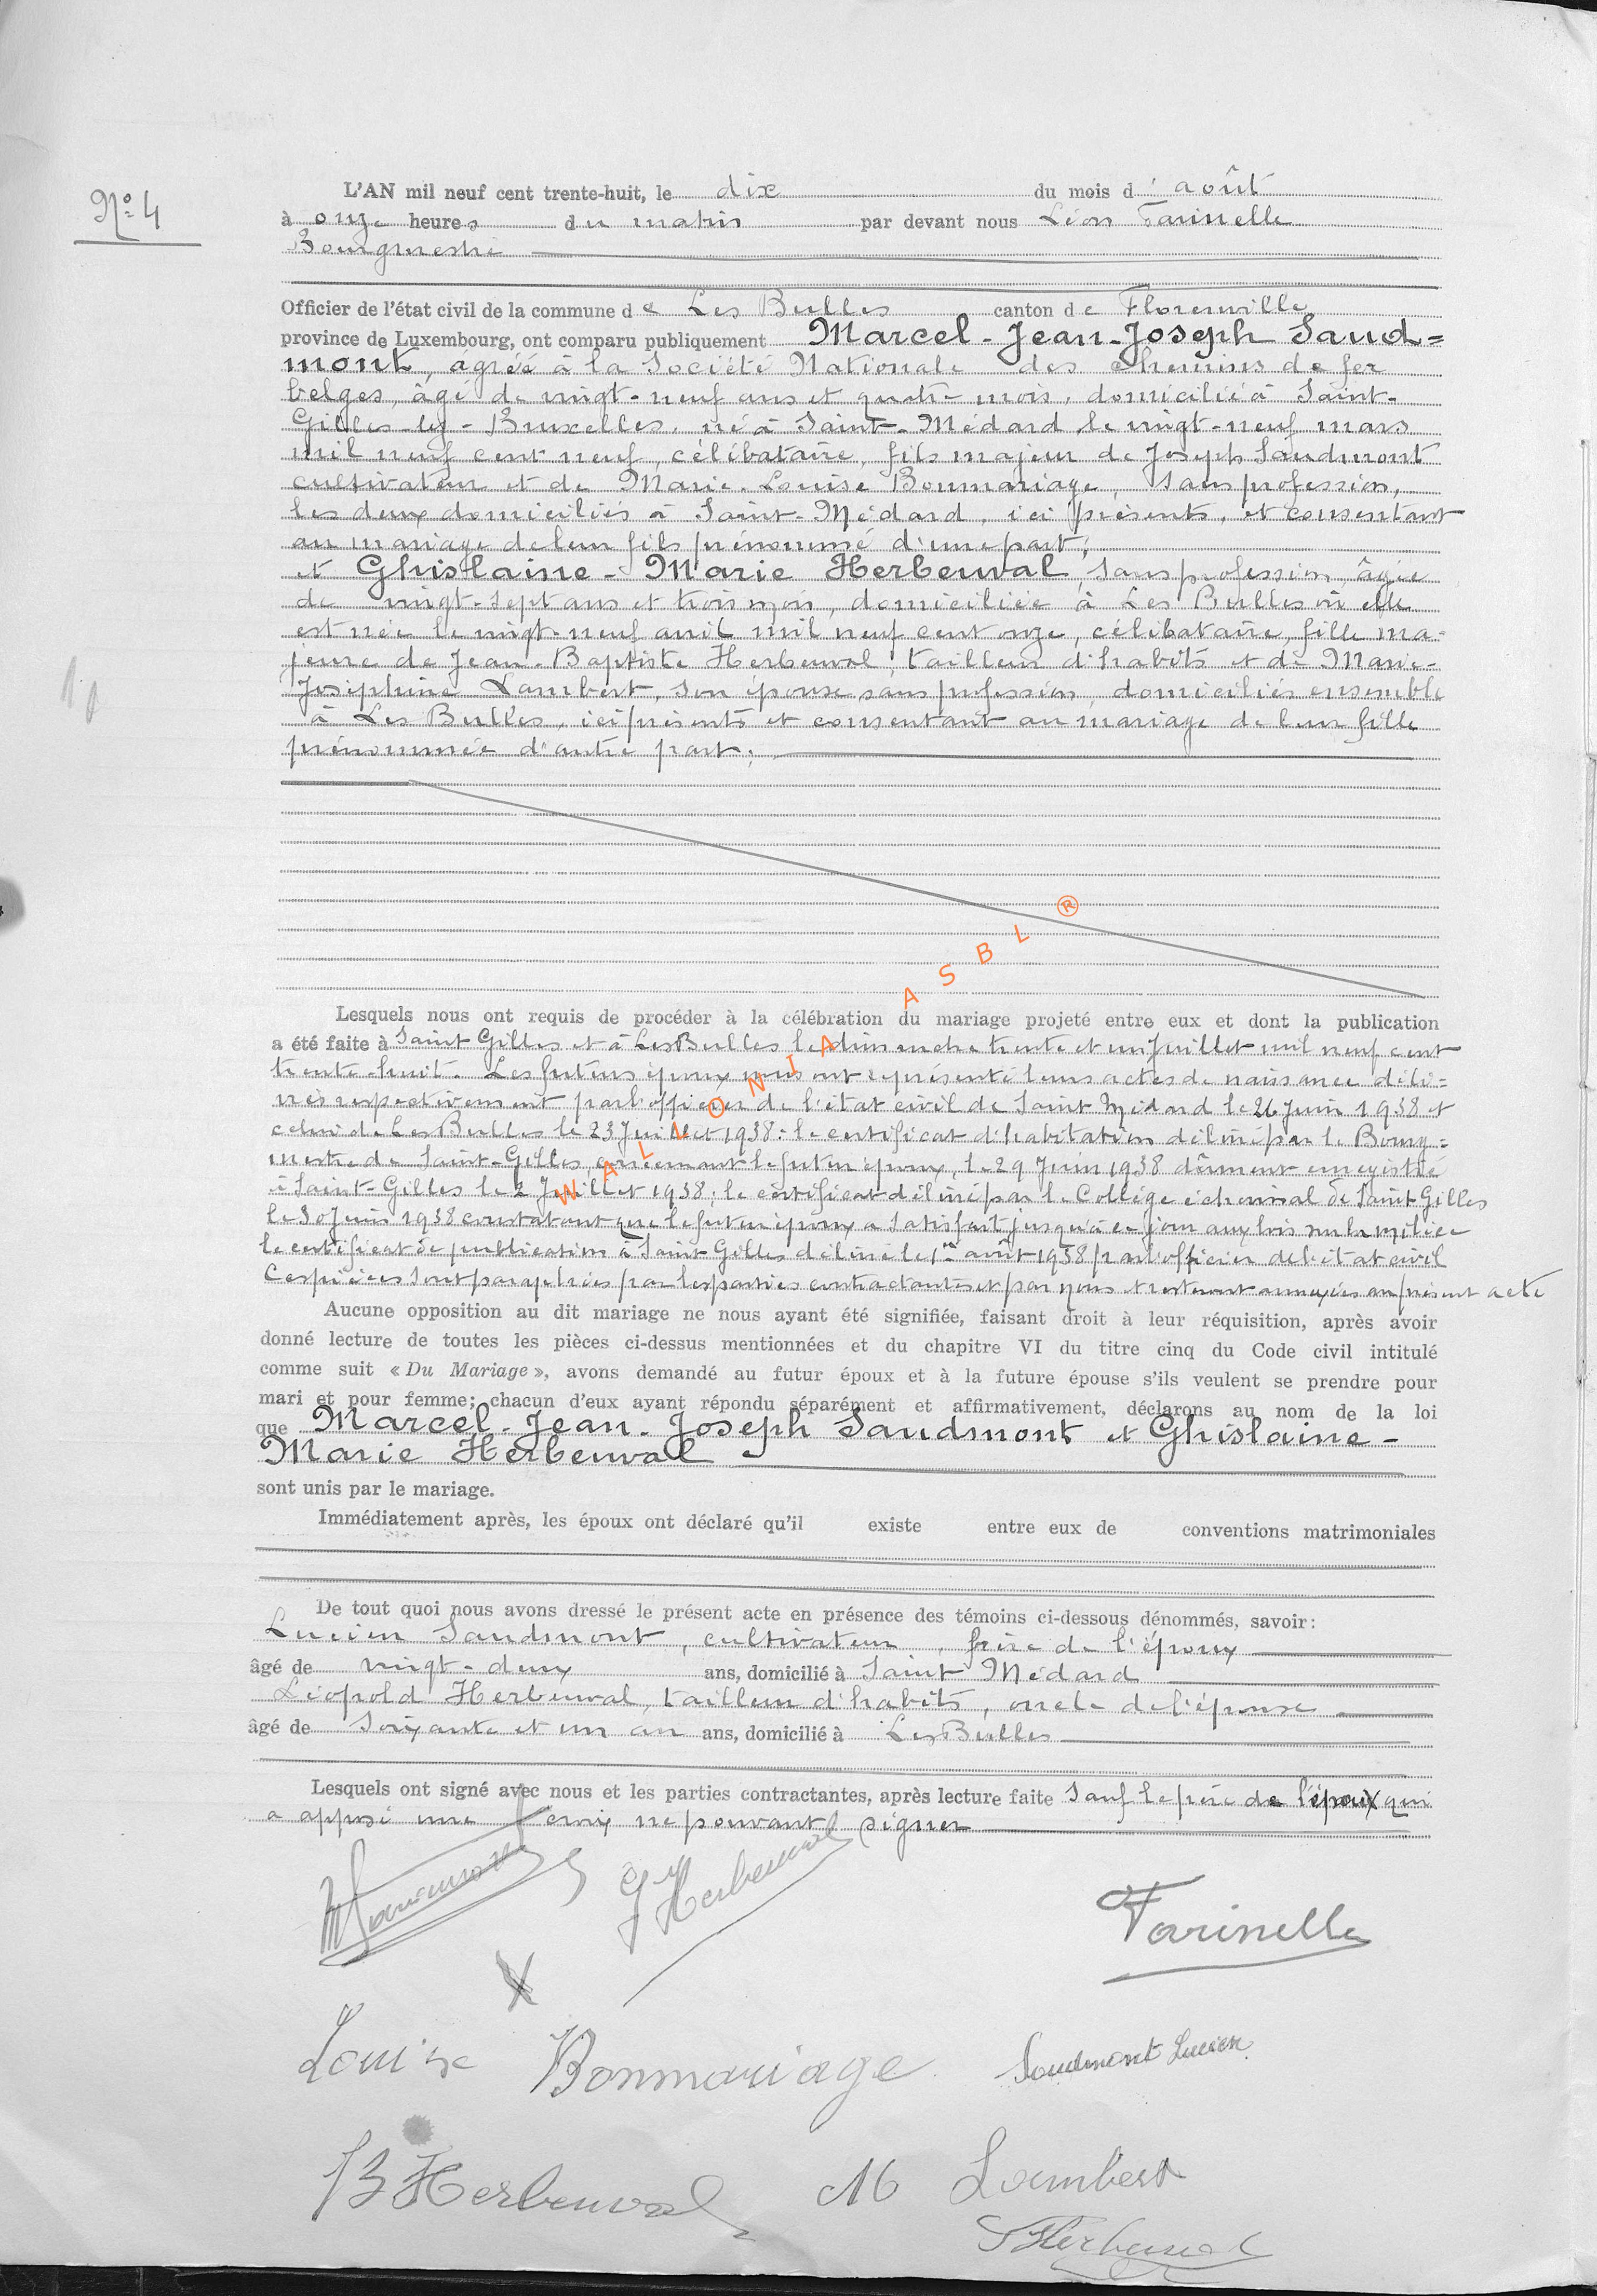 N° 4
L'AN mil neuf cent trente-huit, le dix du mois d' août
à onze heures du matin par devant nous Léon Farinelle
Bourgmestre
Officier de l'état civil de la commune de Les Bulles canton de Florenville
province de Luxembourg, ont comparu publiquement Marcel-Jean-Joseph Saud=
mont, agréé à la Société Nationale des chemins de fer
belges, âgé de vingt-neuf ans et quatre mois, domicilié à Saint-
Gilles-lez-Bruxelles, né à Saint-Médard, le vingt-neuf mars
mil neuf cent neuf, célibataire, fils majeur de Joseph Saudmont
cultivateur et de Marie-Louise Bonmariage, sans profession,
les deux domiciliés à Saint-Médard, ici présents, et consentant
au mariage de leur fils prénommé d'une part;
et Ghislaine-Marie Herbeuval, sans profession, âgée
de vingt-sept ans et trois mois, domiciliée à Les Bulles où elle
est née le vingt-neuf avril mil neuf cent onze, célibataire, fille ma-
jeure de Jean-Baptiste Herbeuval, tailleur d'habits et de Marie-
Joséphine Lambert, son épouse, sans profession, domiciliés ensemble
à Les Bulles, ici présents et consentant au mariage de leur fille
prénommée d'autre part;
WALLONIA ASBL ®
Lesquels nous ont requis de procéder à la célébration du mariage projeté entre eux et dont la publication
a été faite à Saint Gilles et à Les Bulles le dimanche trente et un Juillet mil neuf cent
trente-huit. Les futurs époux nous ont représenté leurs actes de naissance déli=
vrés respectivement par l'officier de l'état civil de Saint Médard le 26 Juin 1938 et
celui de Les Bulles le 23 Juillet 1938: le certificat d'habitation délivré par le Bourg=
mestre de Saint-Gilles, concernant le futur époux, le 29 Juin 1938 dûment enregistré
à Saint-Gilles le 2 Juillet 1938; le certificat délivré par le Collège échevinal de Saint Gilles
le 30 Juin 1938 constatant que le futur époux a satisfait jusqu'à ce jour aux lois sur la milice
le certificat de publication à Saint Gilles délivré le 1er août 1938 par l'officier de l'état civil
Ces pièces sont paraphées par les parties contractantes et par nous et resteront annexées au présent acte
Aucune opposition au dit mariage ne nous ayant été signifiée, faisant droit à leur réquisition, après avoir
donné lecture de toutes les pièces ci-dessus mentionnées et du chapitre VI du titre cinq du Code civil intitulé
comme suit « Du Mariage », avons demandé au futur époux et à la future épouse s'ils veulent se prendre pour
mari et pour femme; chacun d'eux ayant répondu séparément et affirmativement, déclarons au nom de la loi
que Marcel-Jean-Joseph Saudmont et Ghislaine-
Marie Herbeuval
sont unis par le mariage.
Immédiatement après, les époux ont déclaré qu'il existe entre eux de conventions matrimoniales
De tout quoi nous avons dressé le présent acte en présence des témoins ci-dessous dénommés, savoir:
Lucien Saudmont, cultivateur, frère de l'époux
âgé de vingt-deux ans, domicilié à Saint Médard
Léopold Herbeuval, tailleur d'habits, oncle de l'épouse
âgé de soixante et un an ans, domicilié à Les Bulles
Lesquels ont signé avec nous et les parties contractantes, après lecture faite sauf le père de l'époux qui
a apposé une croix ne pouvant signer
M Saudmont G Herbeuval
Farinelle
X
Louise Bonmariage Saudmont Lucien
JB Herbeuval M Lambert
L Herbeuval